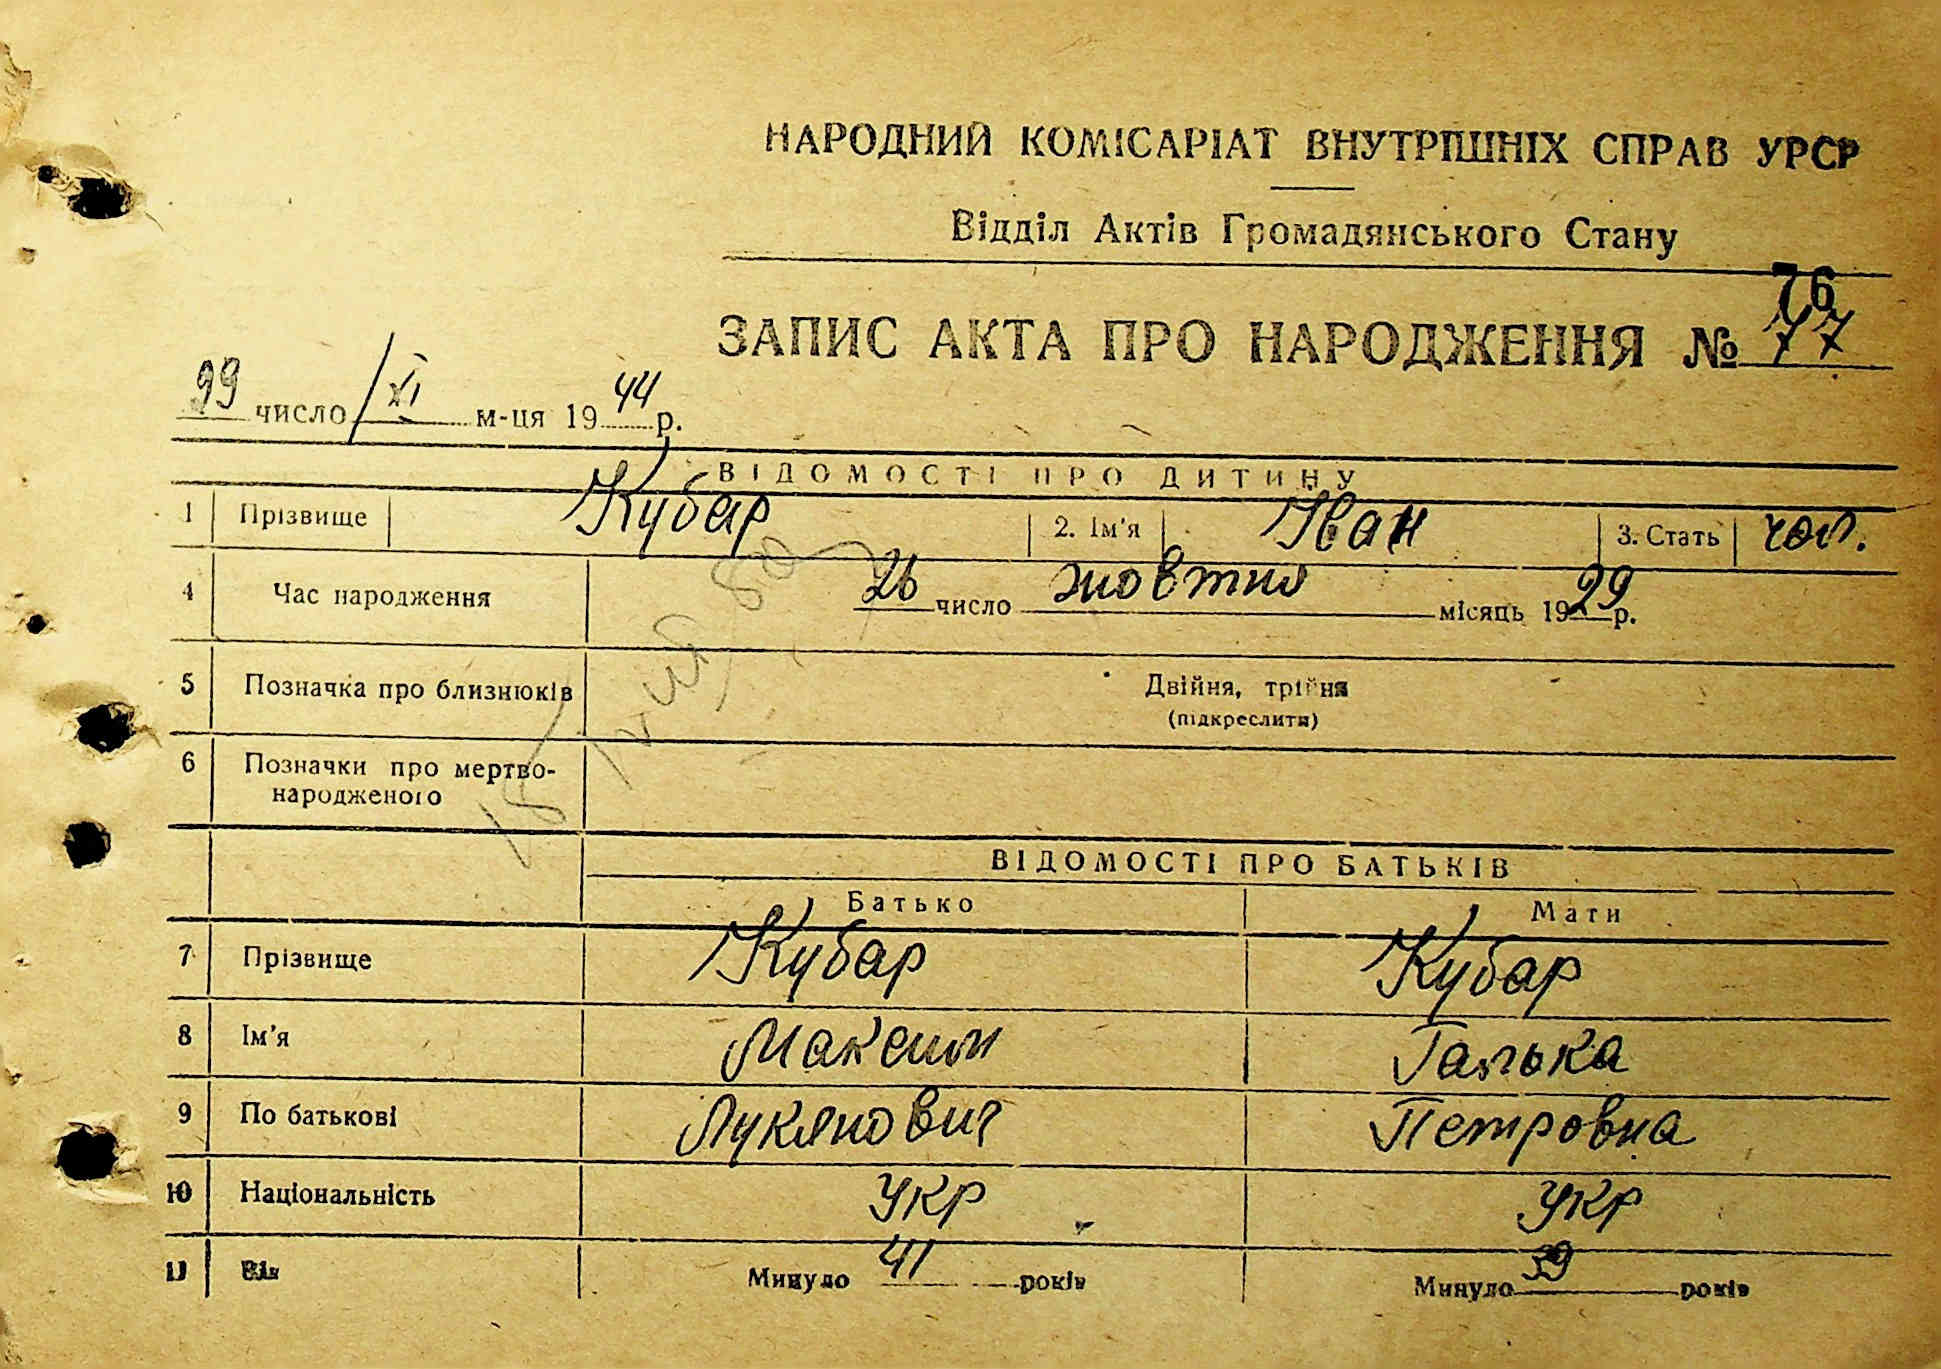 НАРОДНИЙ КОМІСАРІАТ ВНУТРІШНІХ СПРАВ УРСР
Відділ Актів Громадянського Стану
76
ЗАПИС АКТА ПРО НАРОДЖЕННЯ № 77
99 число XI м-ця 1944 р.
ВІДОМОСТІ ПРО ДИТИНУ
1 Прізвище Кубар 2. Ім'я Іван 3. Стать чол.
4 Час народження 26 число жовтня місяць 1929 р.
5 Позначка про близнюків Двійня, трійня
(підкреслити)
6 Позначки про мертво-
народженого
ВІДОМОСТІ ПРО БАТЬКІВ
Батько Мати
7 Прізвище Кубар Кубар
8 Ім'я Максим Галька
9 По батькові Лукянович Петровна
10 Національність Укр Укр
11 Вік Минуло 41 років Минуло 39 років